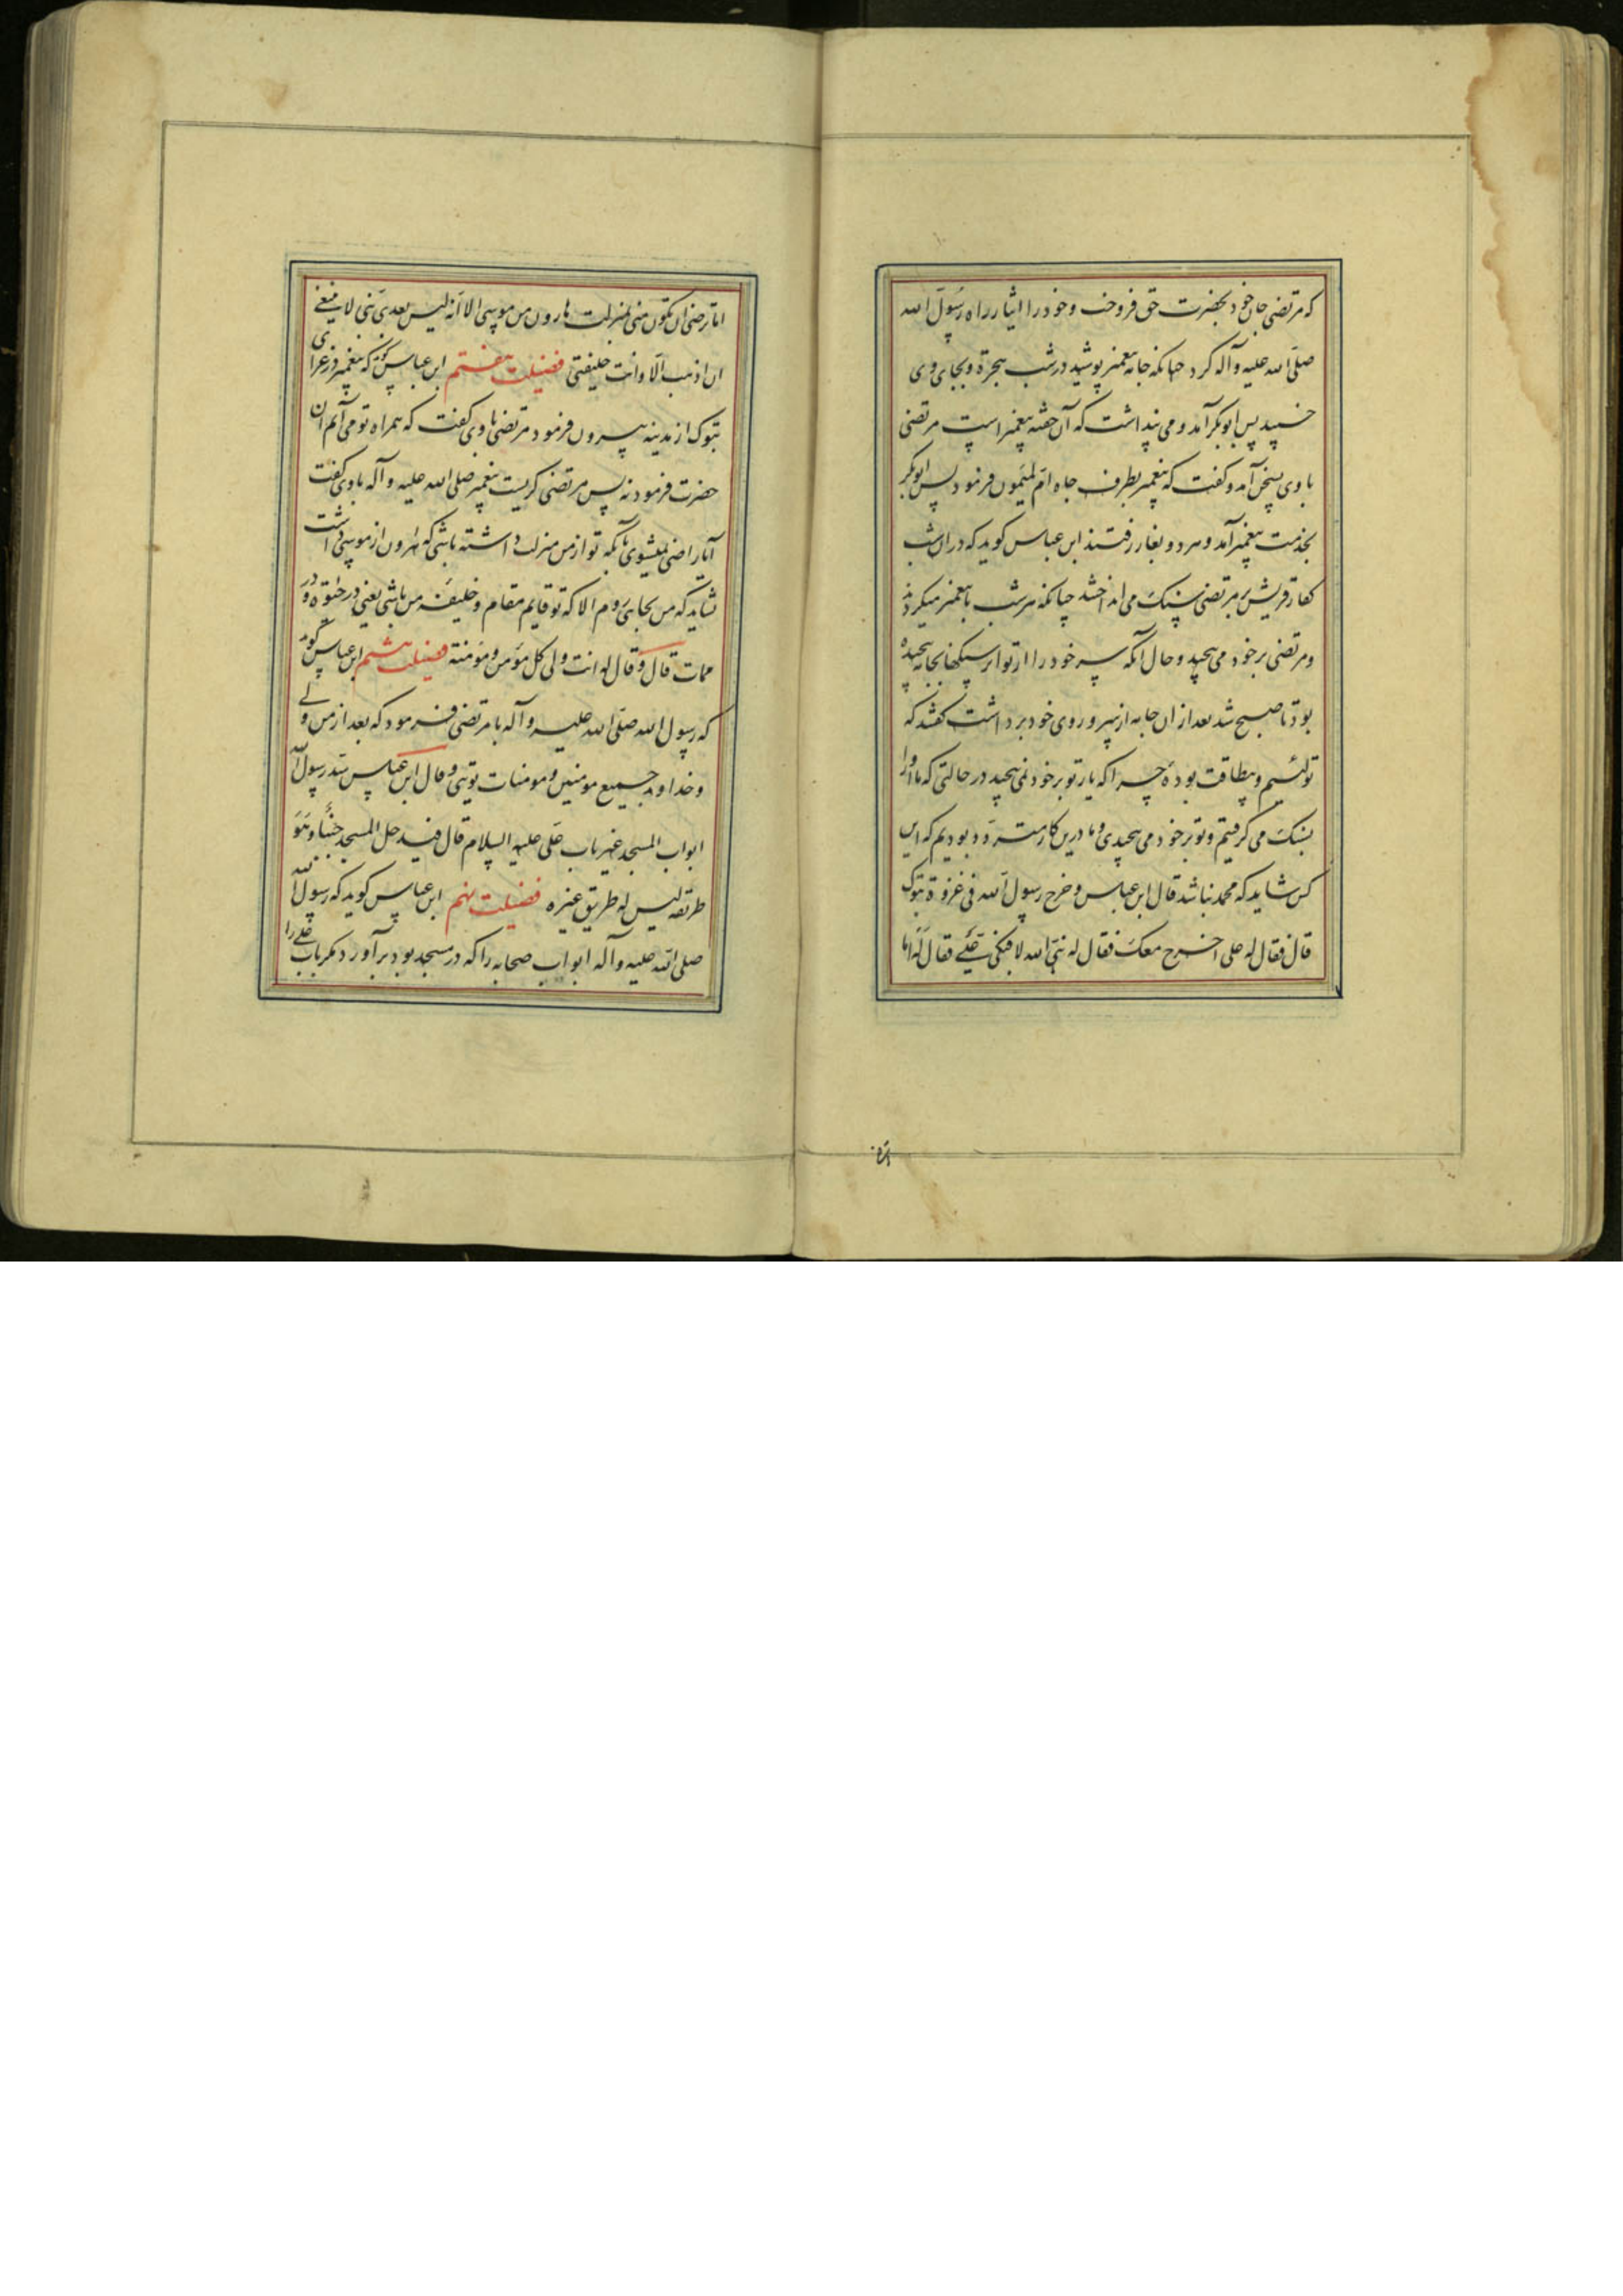 که مرتضی جان خود بحضرت حق فروخت و خود را ایثار راه رسول الله
صلی الله علیه و آله کرد چنانکه جامه پیغمبر پوشید در شب هجرة و بجای وی
خسپید پس ابوبکر آمد و می پنداشت که آن خفته پیغمبر است مرتضی
با وی بسخن آمد و کفت که پیغمبر بطرف چاه ام المیمون فرمود پس ابوبکر
بخدمت پیغمبر آمد و هر دو بغار رفتند ابن عباس کوید که در ان شب
کفار قریش بر مرتضی سنک می انداختند چنانکه هر شب با پیغمبر میکردند
و مرتضی بر خود می پیچید و حال آنکه سر خود را از تواتر سنکها بجامه پیچیده
بود تا صبح شد بعد از ان جامه از سر و روی خود برداشت کفتند که
تو لئیم و بیطاقت بودهٔ چرا که یار تو بر خود نمی پیچید در حالتی که ما او را
بسنک می کرفتیم و تو بر خود می پیچیدی و ما درین کار متردد بودیم که این
کس شاید که محمد نباشد قال ابن عباس و خرج رسول الله فی غزوة تبوک
قال فقال له علی اخرج معک فقال له نبی الله لا فبکی علی فقال له اما
اما ترضی ان تکون منی بمنزلت هارون من موسی الا انه لیس بعدی نبی لا ینبغی
ان اذهب الا و انت خلیفتی فضیلت هفتم ابن عباس کوید که پیغمبر در غزای
تبوک از مدینه بیرون فرمود مرتضی با وی کفت که همراه تو می آیم ان
حضرت فرمود نه پس مرتضی کریست پیغمبر صلی الله علیه و آله با وی کفت
آیا راضی نمیشوی بانکه تو از من منزلت داشته باشی که هرون از موسی داشت
نشاید که من بجایی روم الا که تو قایم مقام و خلیفه من باشی یعنی در حیوة و در
ممات قال و قال له انت ولی کل مؤمن و مؤمنته فضیلت هشتم ابن عباس کوید
که رسول الله صلی الله علیه و آله با مرتضی فرمود که بعد از من ولی
و خداوند جمیع مومنین و مومنات تویی و قال ابن عباس سد رسول الله
ابواب المسجد غیر باب علی علیه السلام قال فیدخل المسجد جنبا و هو
طریقه لیس له طریق غیره فضیلت نهم ابن عباس کوید که رسول الله
صلی الله علیه و آله ابواب صحابه را که در مسجد بود برآورد مکر باب علی را